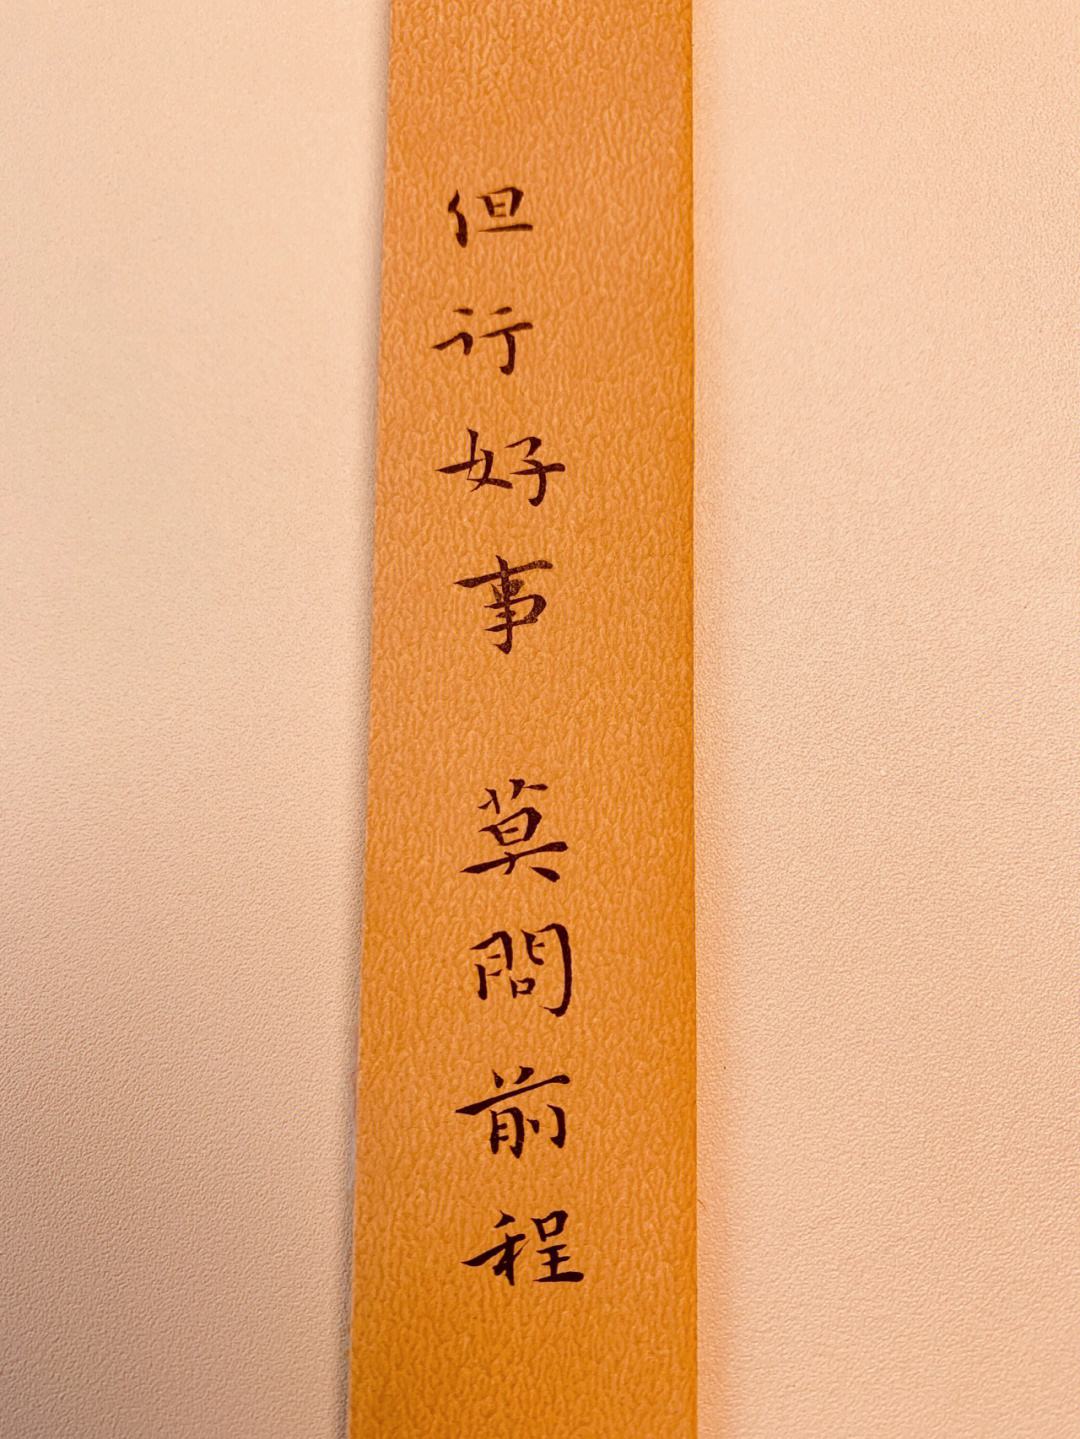 但行好事 莫問前程